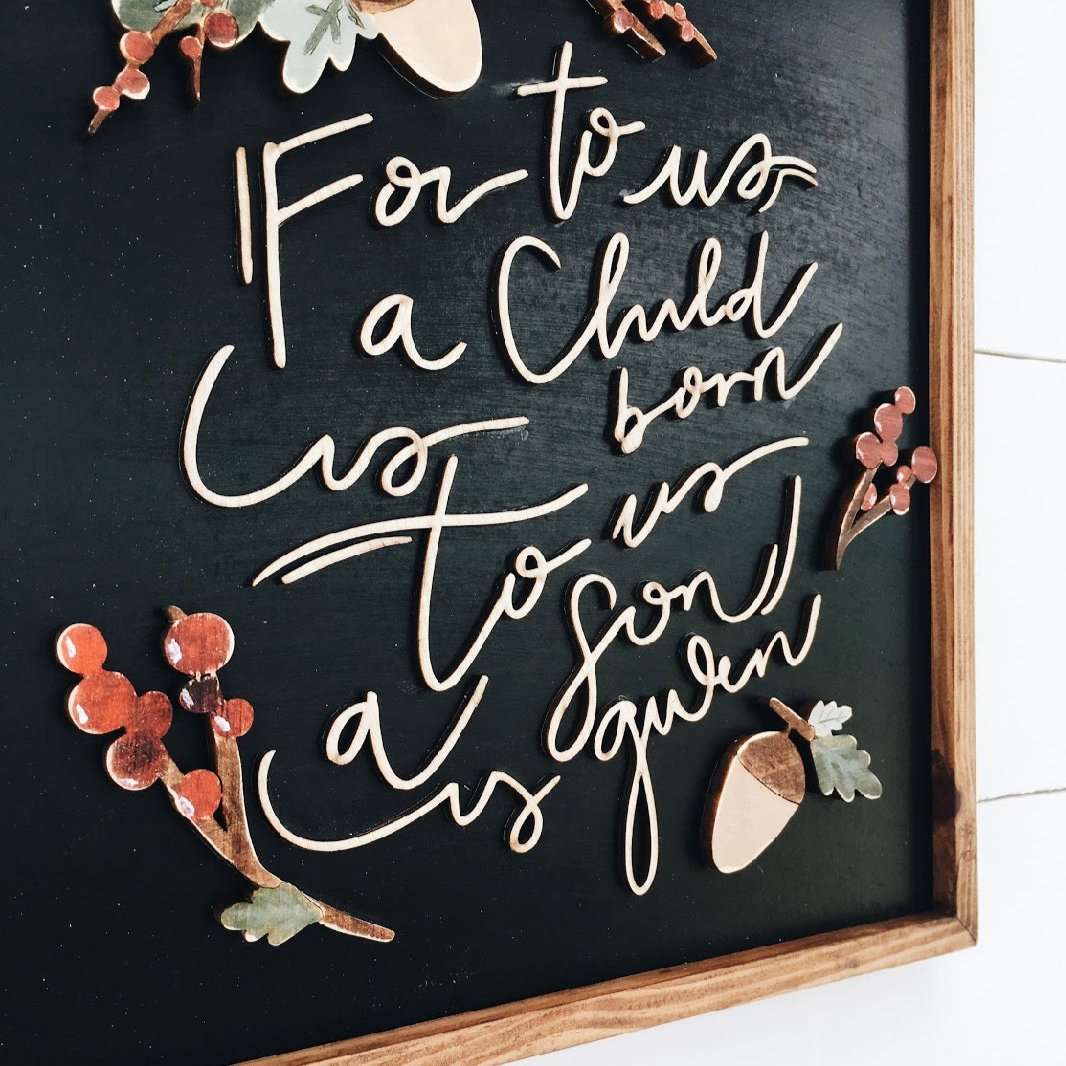 For to us
a Child
is born
to us
a Son
is given